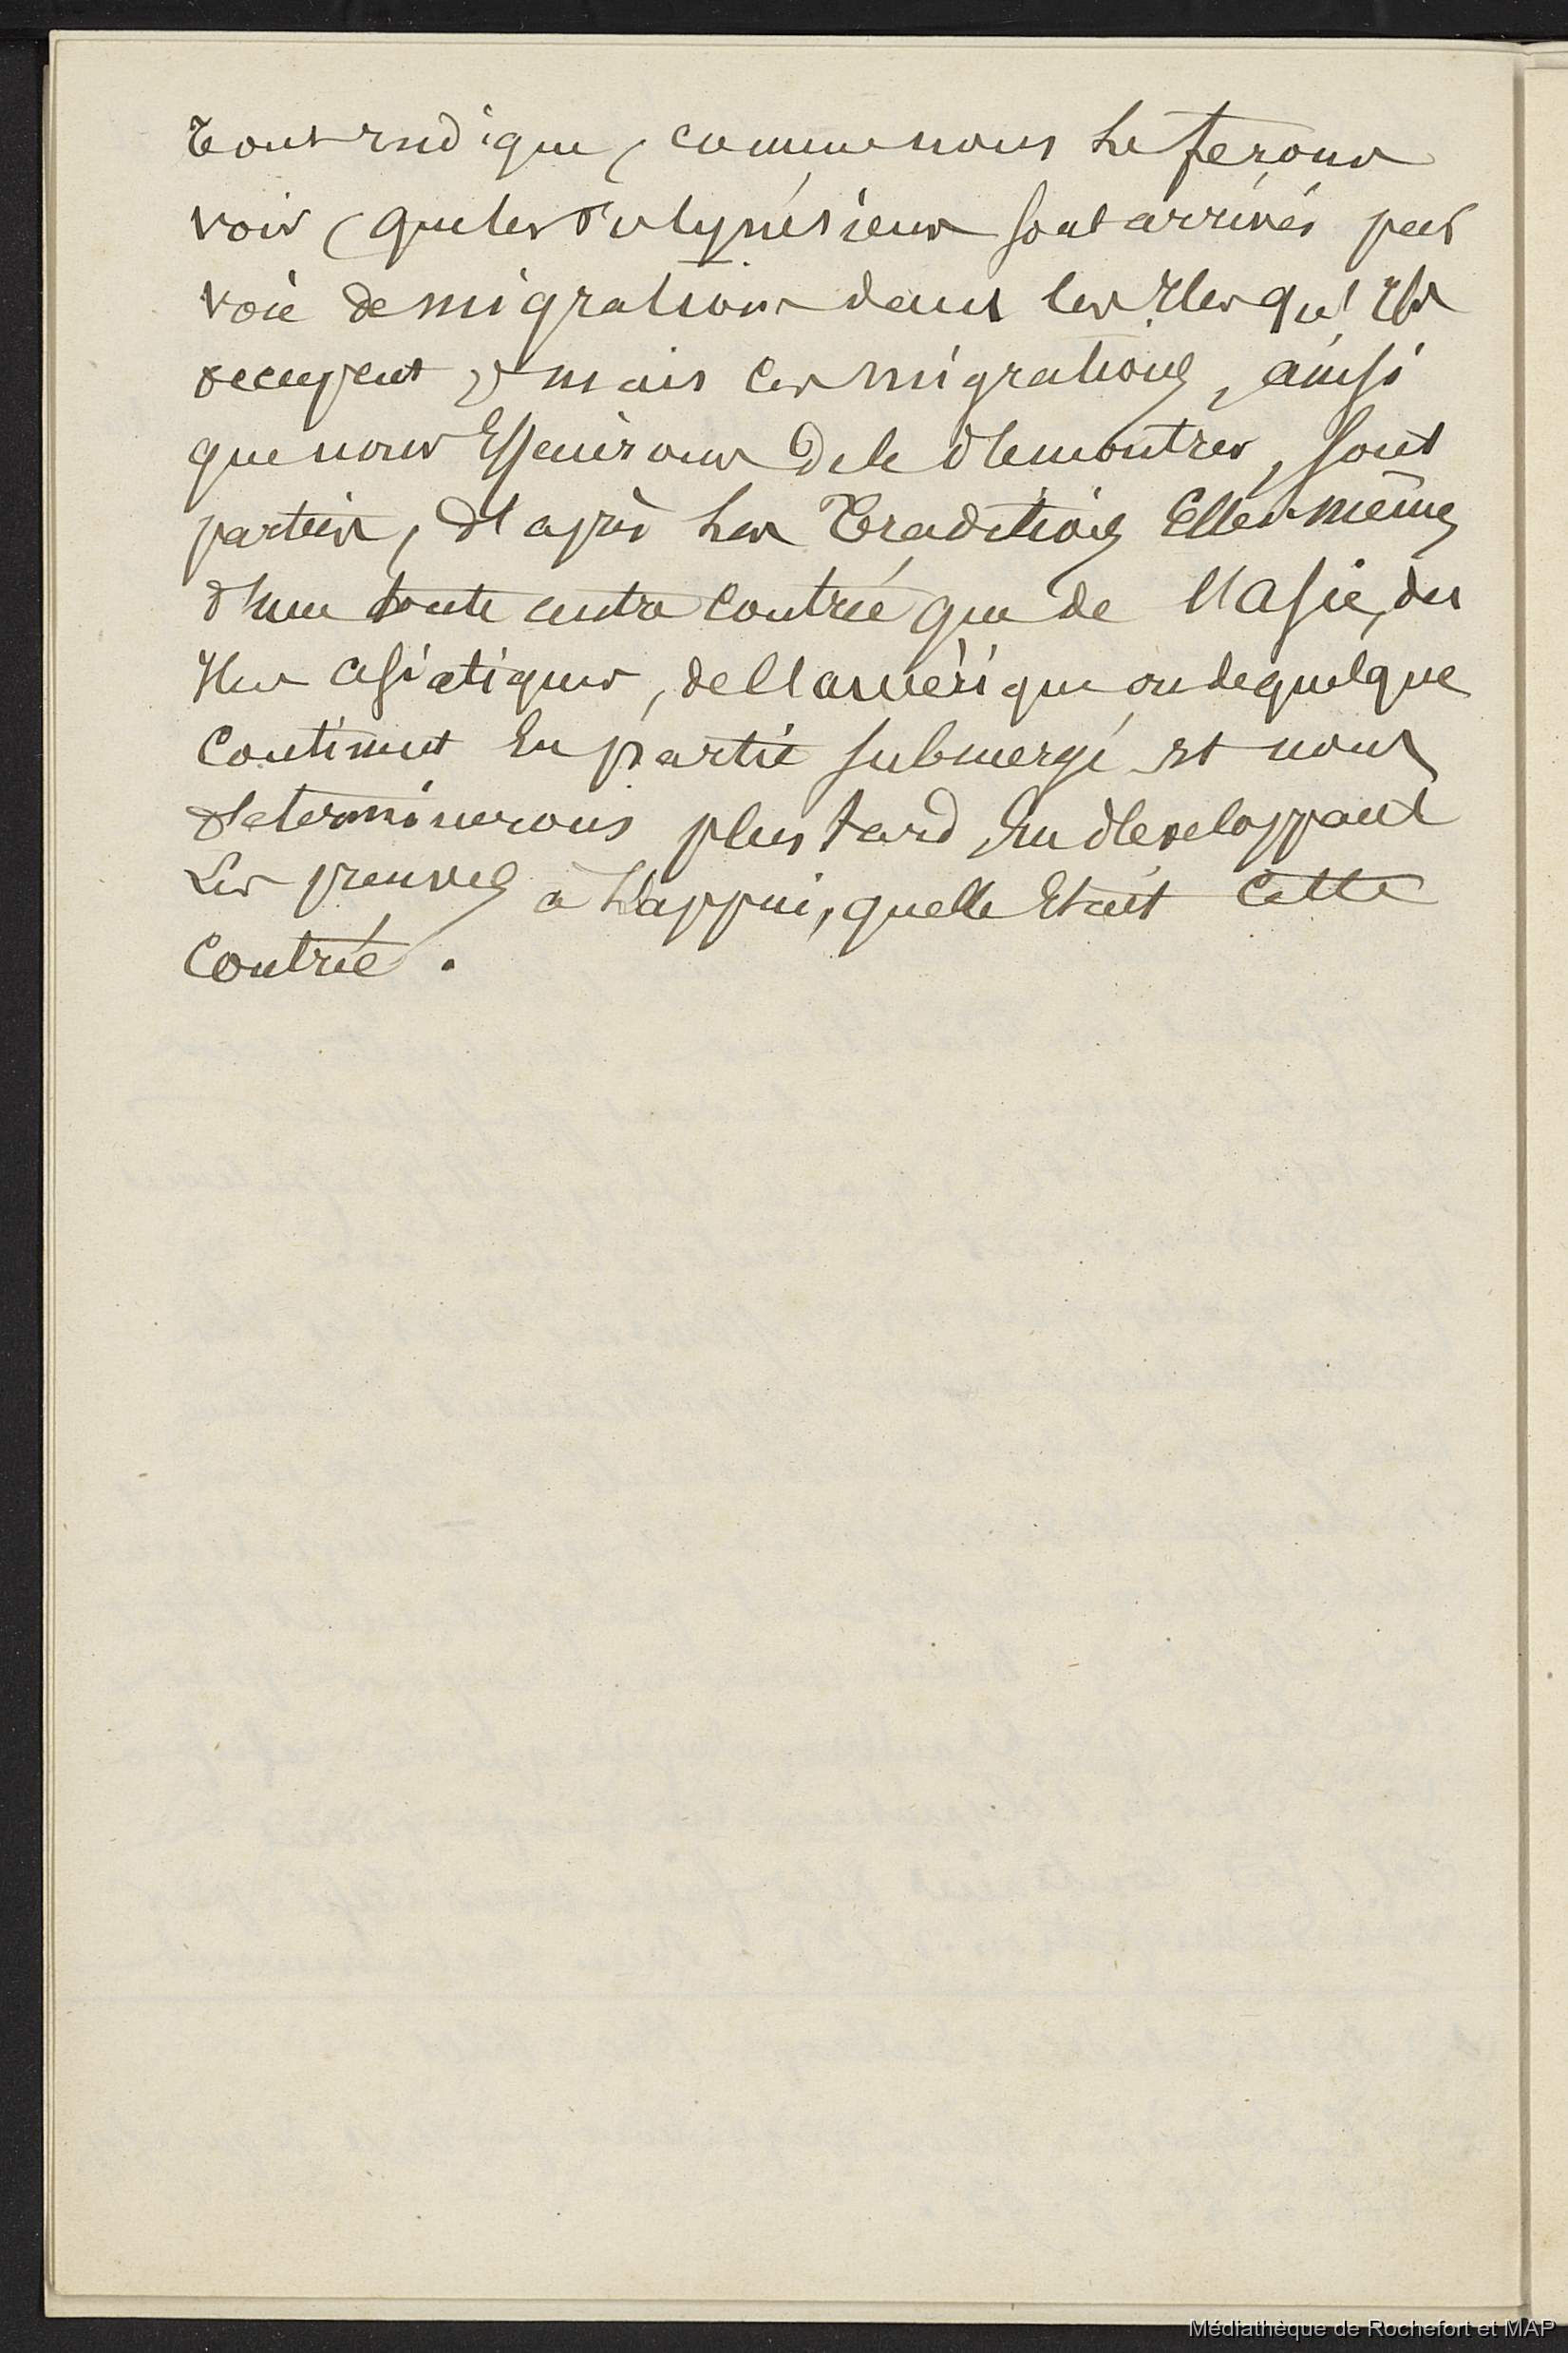 tout indique, comme nous le ferons
voir, que les Polynésiens sont arrivés par
voie de migrations dans les Iles qu'ils
occupent ; mais ces migrations, ainsi
que nous Essaierons de le démontrer, sont
parties, d'après les Traditions Elles-mêmes
d'une toute autre contrée que de l'Asie, des
Iles asiatiques, de l'amérique ou de quelque
Continent En partie submergé et nous
determinerons plus tard, En developpant
Les preuves à l'appui, quelle Etait Cette
Contrée.
Médiathèque de Rochefort et MAP